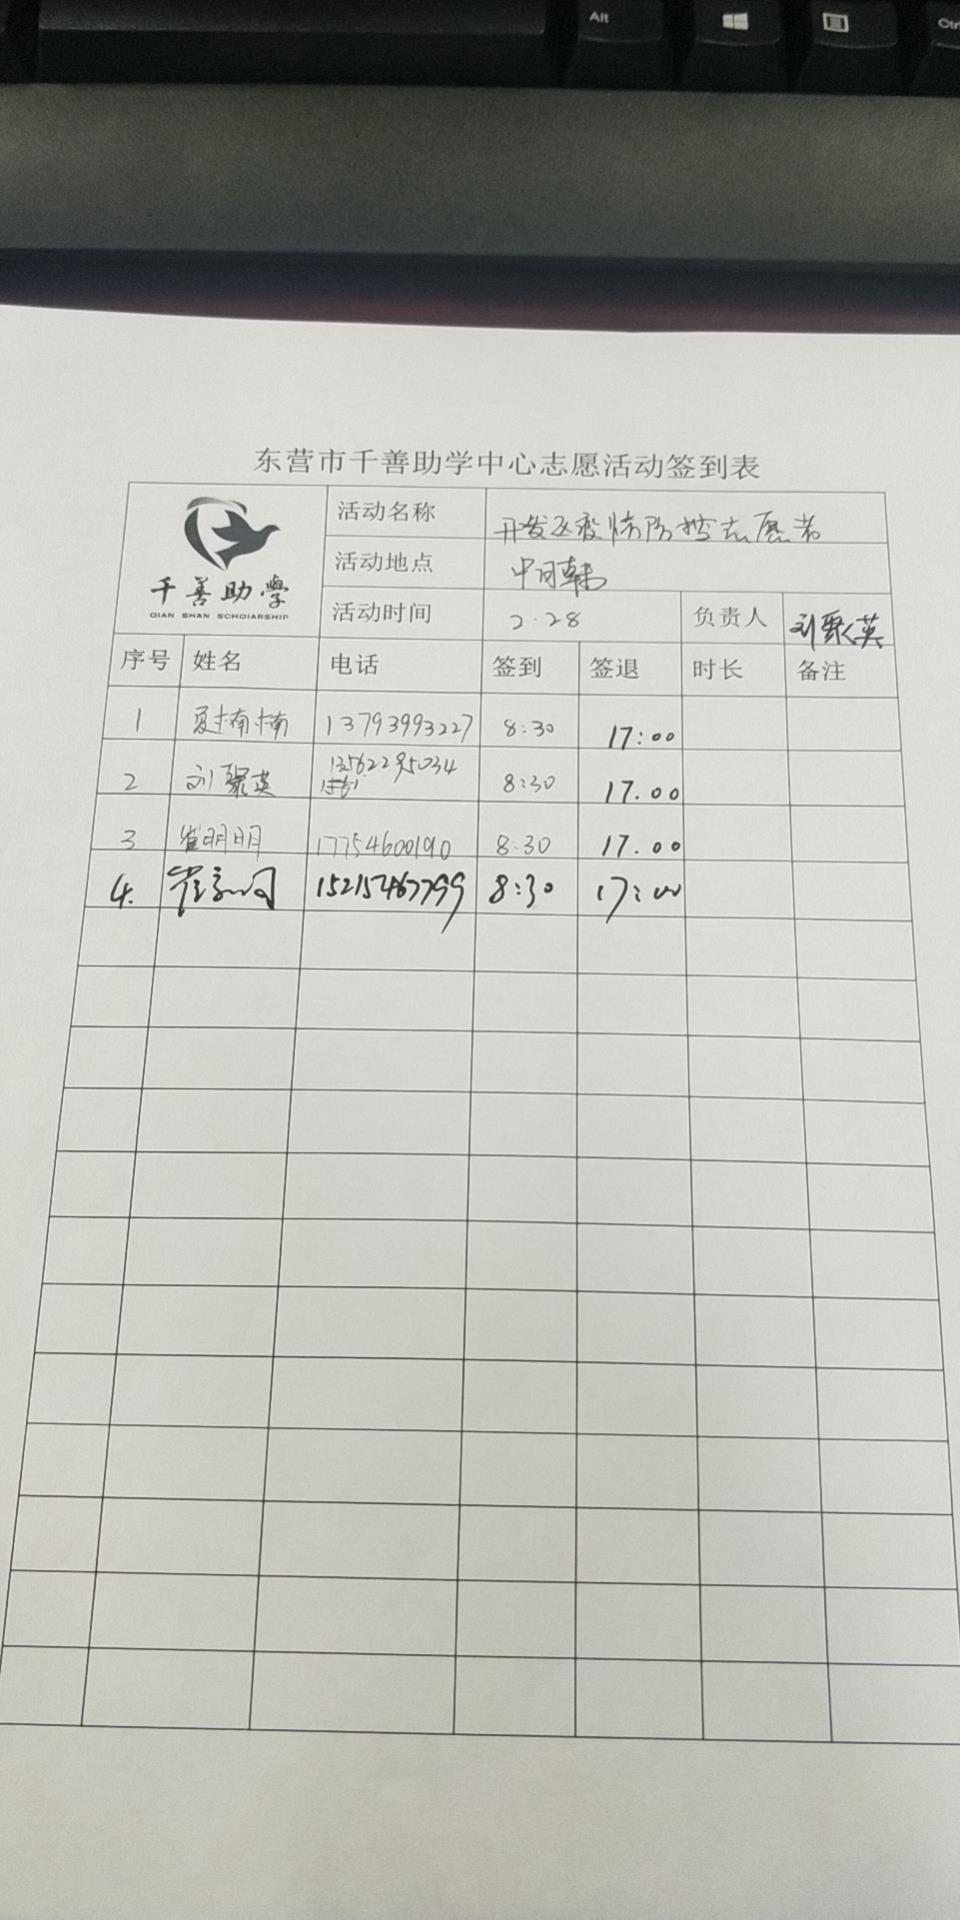 Alt
Ctrl
东营市千善助学中心志愿活动签到表
千善助學
QIAN SHAN SCHOLARSHIP
活动名称 开发区疫情防控志愿者
活动地点
活动时间 2.28 负责人 刘聚英
序号 姓名 电话 签到 签退 时长 备注
1 夏楠楠 13793993227 8:30 17:00
2 刘聚英 8:30 17.00
3 崔明明 17754600190 8:30 17.00
4. 崔 15215467799 8:30 17:00